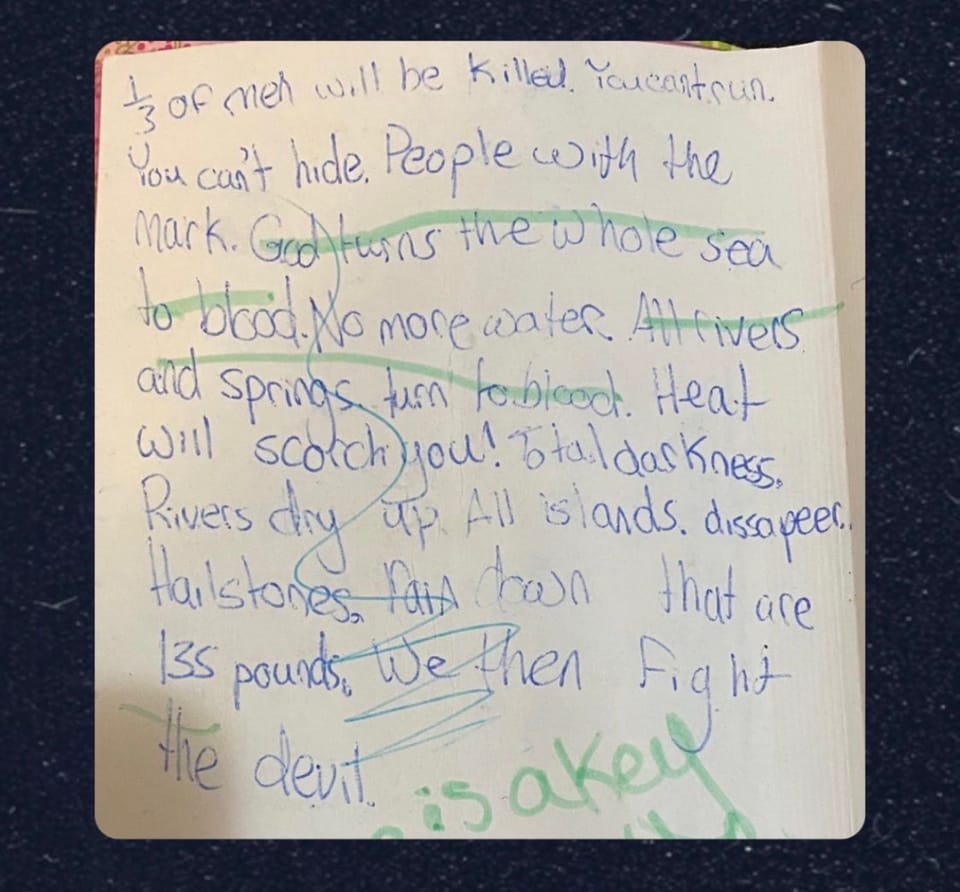 1/3 of men will be killed. You cant run.
You can't hide. People with the
mark. God turns the whole sea
to blood. No more water. All rivers
and springs turn to blood. Heat
will scotch you! Total darkness.
Rivers dry up. All islands. dissapeer.
Hailstones. rain down that are
135 pounds. We then fight
the devil.
is a key